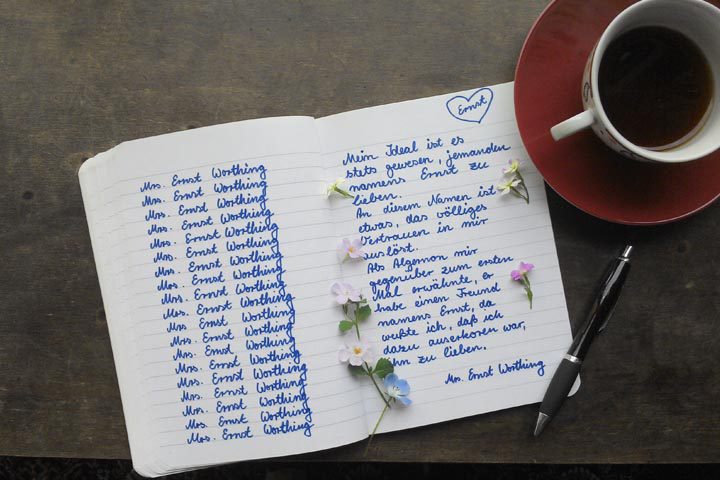 Mrs. Ernst Worthing
Mrs. Ernst Worthing
Mrs. Ernst Worthing
Mrs. Ernst Worthing
Mrs. Ernst Worthing
Mrs. Ernst Worthing
Mrs. Ernst Worthing
Mrs. Ernst Worthing
Mrs. Ernst Worthing
Mrs. Ernst Worthing
Mrs. Ernst Worthing
Mrs. Ernst Worthing
Mrs. Ernst Worthing
Mrs. Ernst Worthing
Mrs. Ernst Worthing
Mrs. Ernst Worthing
Mrs. Ernst Worthing
Mrs. Ernst Worthing
Mrs. Ernst Worthing
Ernst
Mein Ideal ist es
stets gewesen, jemanden
namens Ernst zu
lieben.
An diesem Namen ist
etwas, das völliges
Vertrauen in mir
auslöst.
Als Algernon mir
gegenüber zum ersten
Mal erwähnte, er
habe einen Freund
namens Ernst, da
wußte ich, daß ich
dazu auserkoren war,
ihn zu lieben.
Mrs. Ernst Worthing